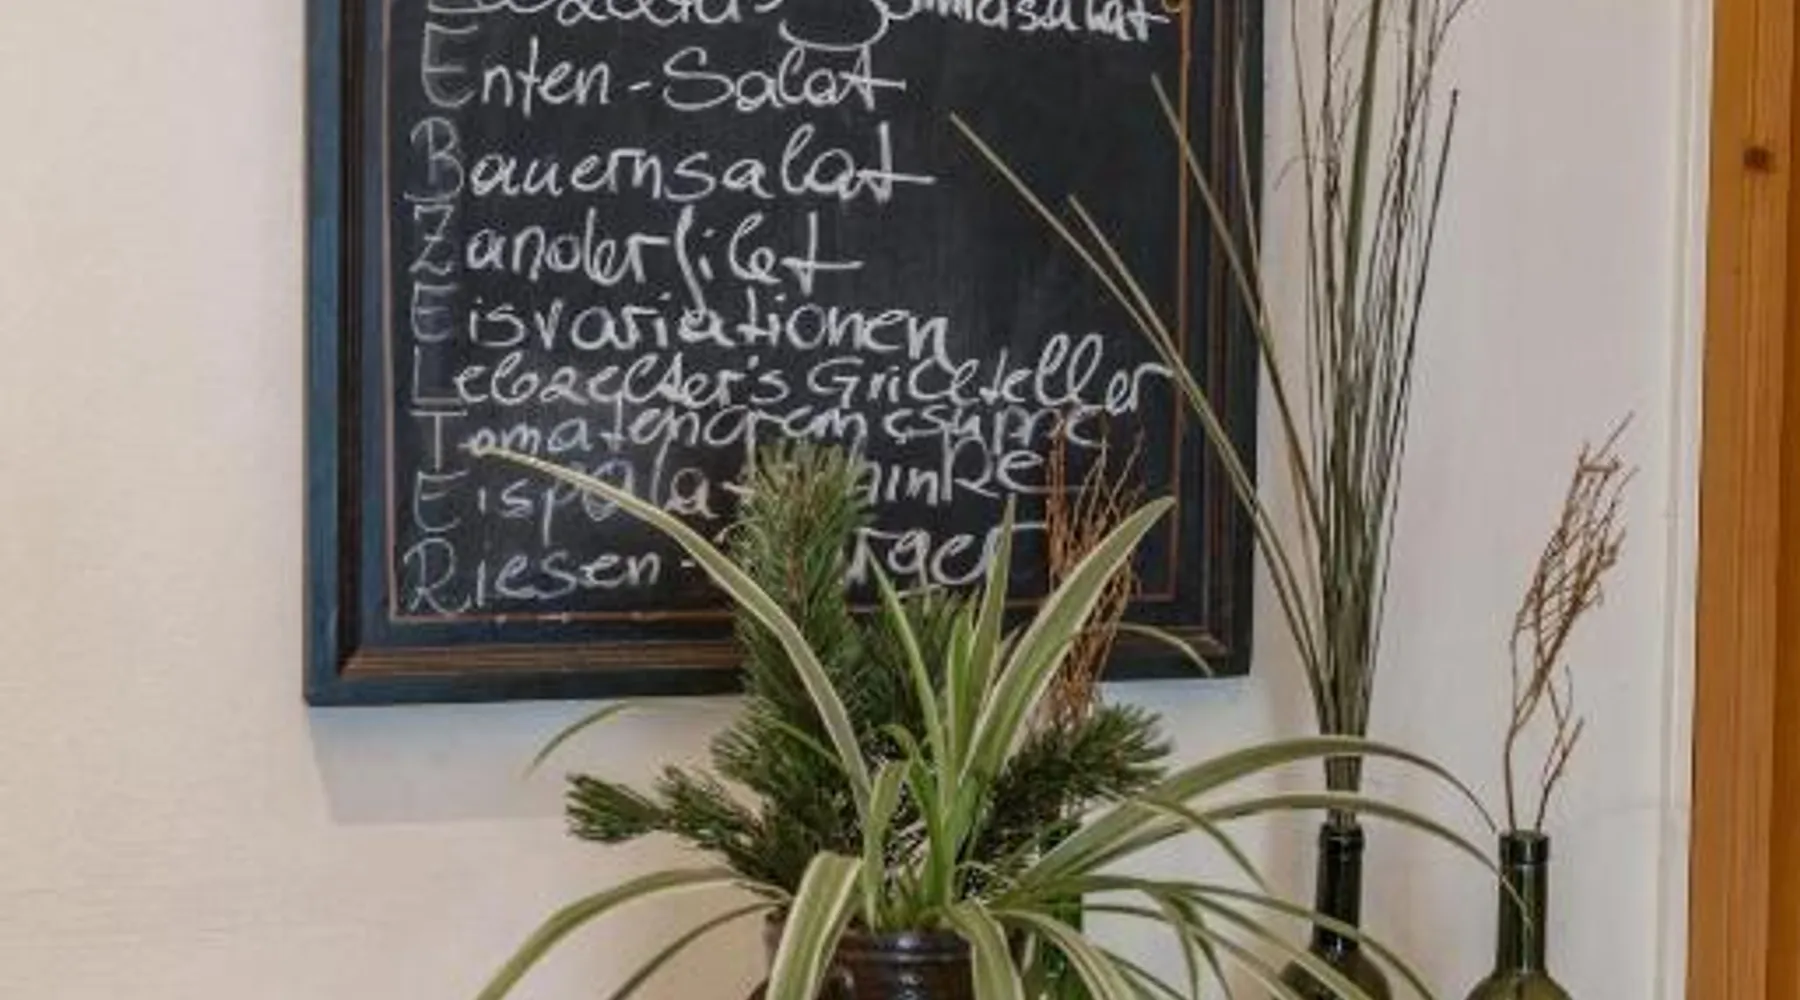 Enten-Salat
Bauernsalat
Zanderfilet
Eisvariationen
Lebzelter's Grillteller
Tomatencremesuppe
Riesen-